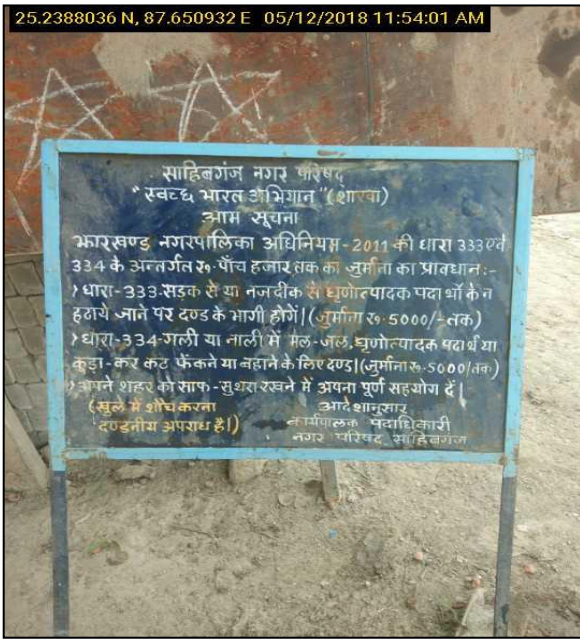 25.2388036 N, 87.650932 E 05/12/2018 11:54:01 AM
साहिबगंज नगर परिषद्
"स्वच्छ भारत अभियान" (शाखा)
आम सूचना
झारखण्ड नगरपालिका अधिनियम-2011 की धारा 333 एवं
334 के अन्तर्गत रु॰ पाँच हजार तक का जुर्माना का प्रावधान:-
› धारा-333-सड़क से या नजदीक से घृणोत्पादक पदार्थो के न
हटाये जाने पर दण्ड के भागी होगें। (जुर्माना रु॰ 5000/-तक)
› धारा-334-गली या नाली में मल-जल, घृणोत्पादक पदार्थ या
कुड़ा-कर कट फेंकने या बहाने के लिए दण्ड। (जुर्माना रु॰ 5000/तक)
› अपने शहर को साफ-सुथरा रखने में अपना पूर्ण सहयोग दें।
(खुले में शौच करना
दण्डनीय अपराध है।)
आदेशानुसार
कार्यपालक पदाधिकारी
नगर परिषद साहिबगंज